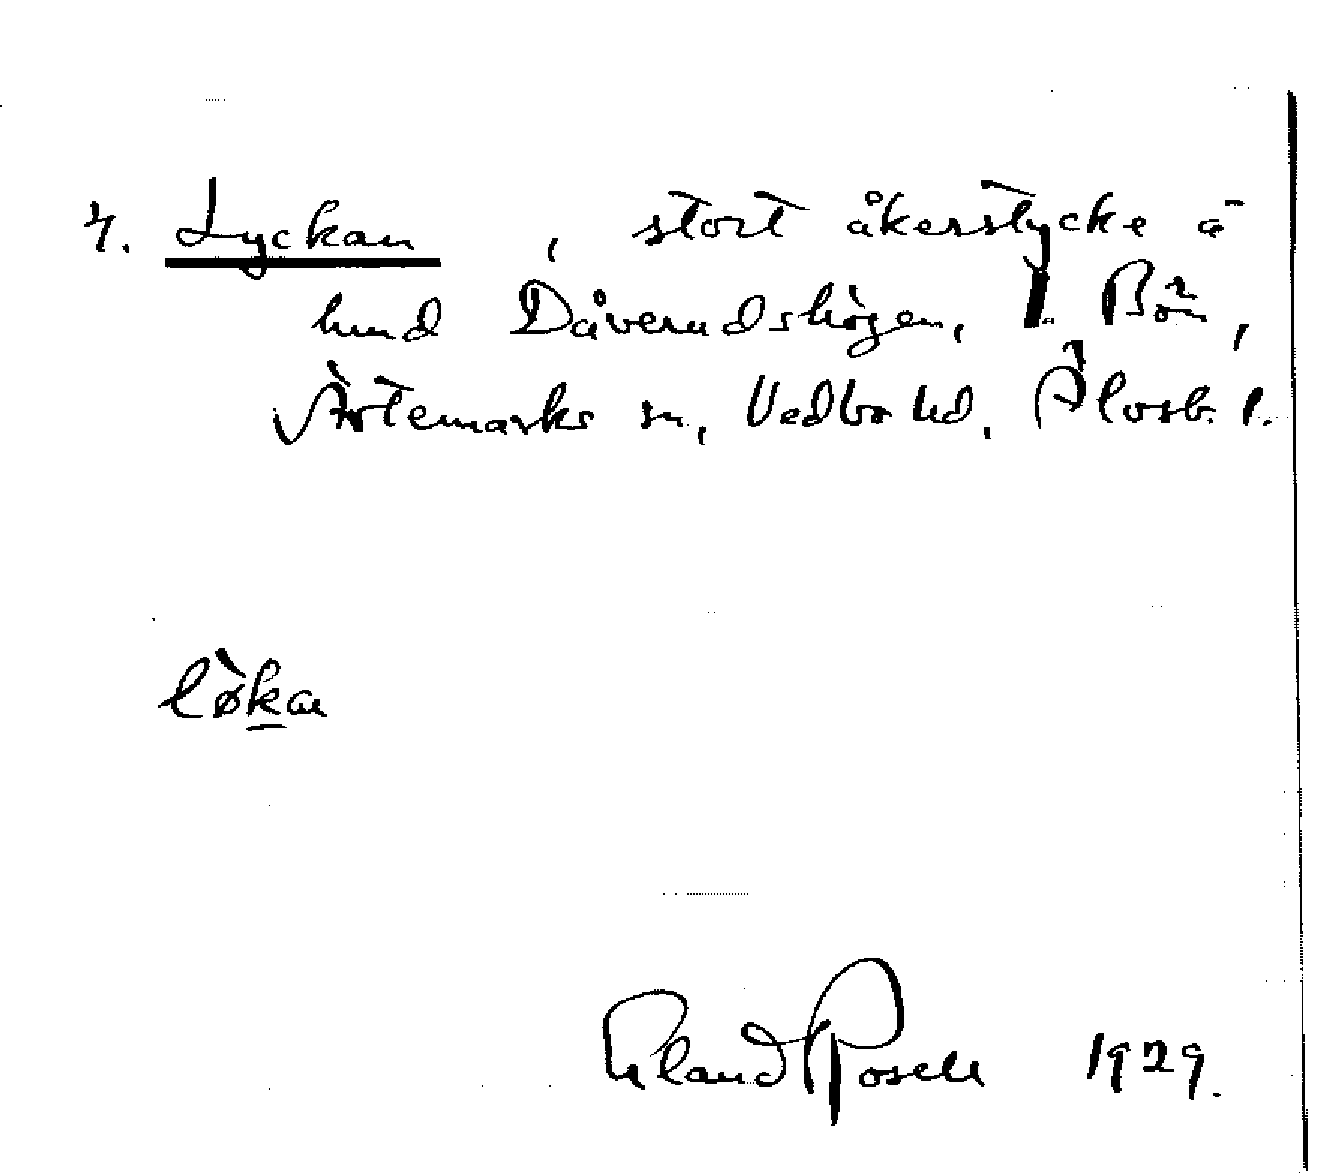 4. Lyckan, stort åkerstycke å
lund Dåverudshögen, Bön,
Ärtemarks sn, Vedbo hd, Älvsb. l.
lø̀kan
Erland Rosell 1929.